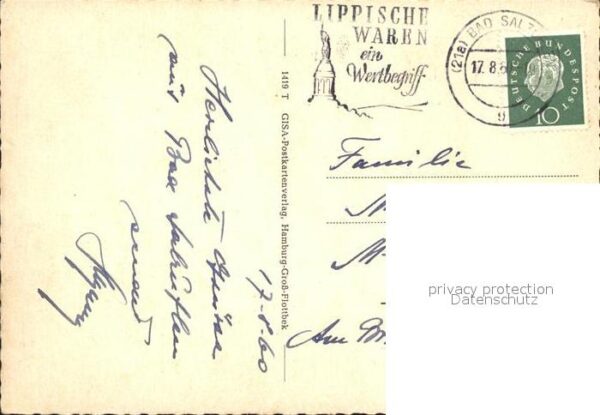 LIPPISCHE
WAREN
ein
Wertbegriff
(21a) BAD SALZ
17.8.6
g
DEUTSCHE BUNDESPOST
10
1419 T GISA-Postkartenverlag, Hamburg-Groß-Flottbek
17.8.60
Herzlichste Grüsse
aus Bad Salzuflen
Familie
Am
privacy protection
Datenschutz